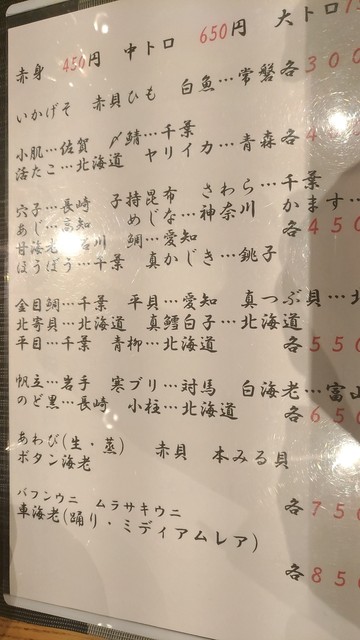 赤身 450円 中トロ 650円 大トロ
いかげそ 赤貝ひも 白魚…常磐 各300
小肌…佐賀 〆鯖…千葉
活たこ…北海道 ヤリイカ…青森 各4
穴子…長崎 子持昆布 さわら…千葉
あじ…高知 めじな…神奈川 かます…
甘海老…石川 鯛…愛知 各450
ほうぼう…千葉 真かじき…銚子
金目鯛…千葉 平貝…愛知 真つぶ貝…北
北寄貝…北海道 真鱈白子…北海道
平目…千葉 青柳…北海道 各550
帆立…岩手 寒ブリ…対馬 白海老…富山
のど黒…長崎 小柱…北海道 各650
あわび(生・蒸) 赤貝 本みる貝
ボタン海老 各750
バフンウニ ムラサキウニ
車海老(踊り・ミディアムレア) 各850